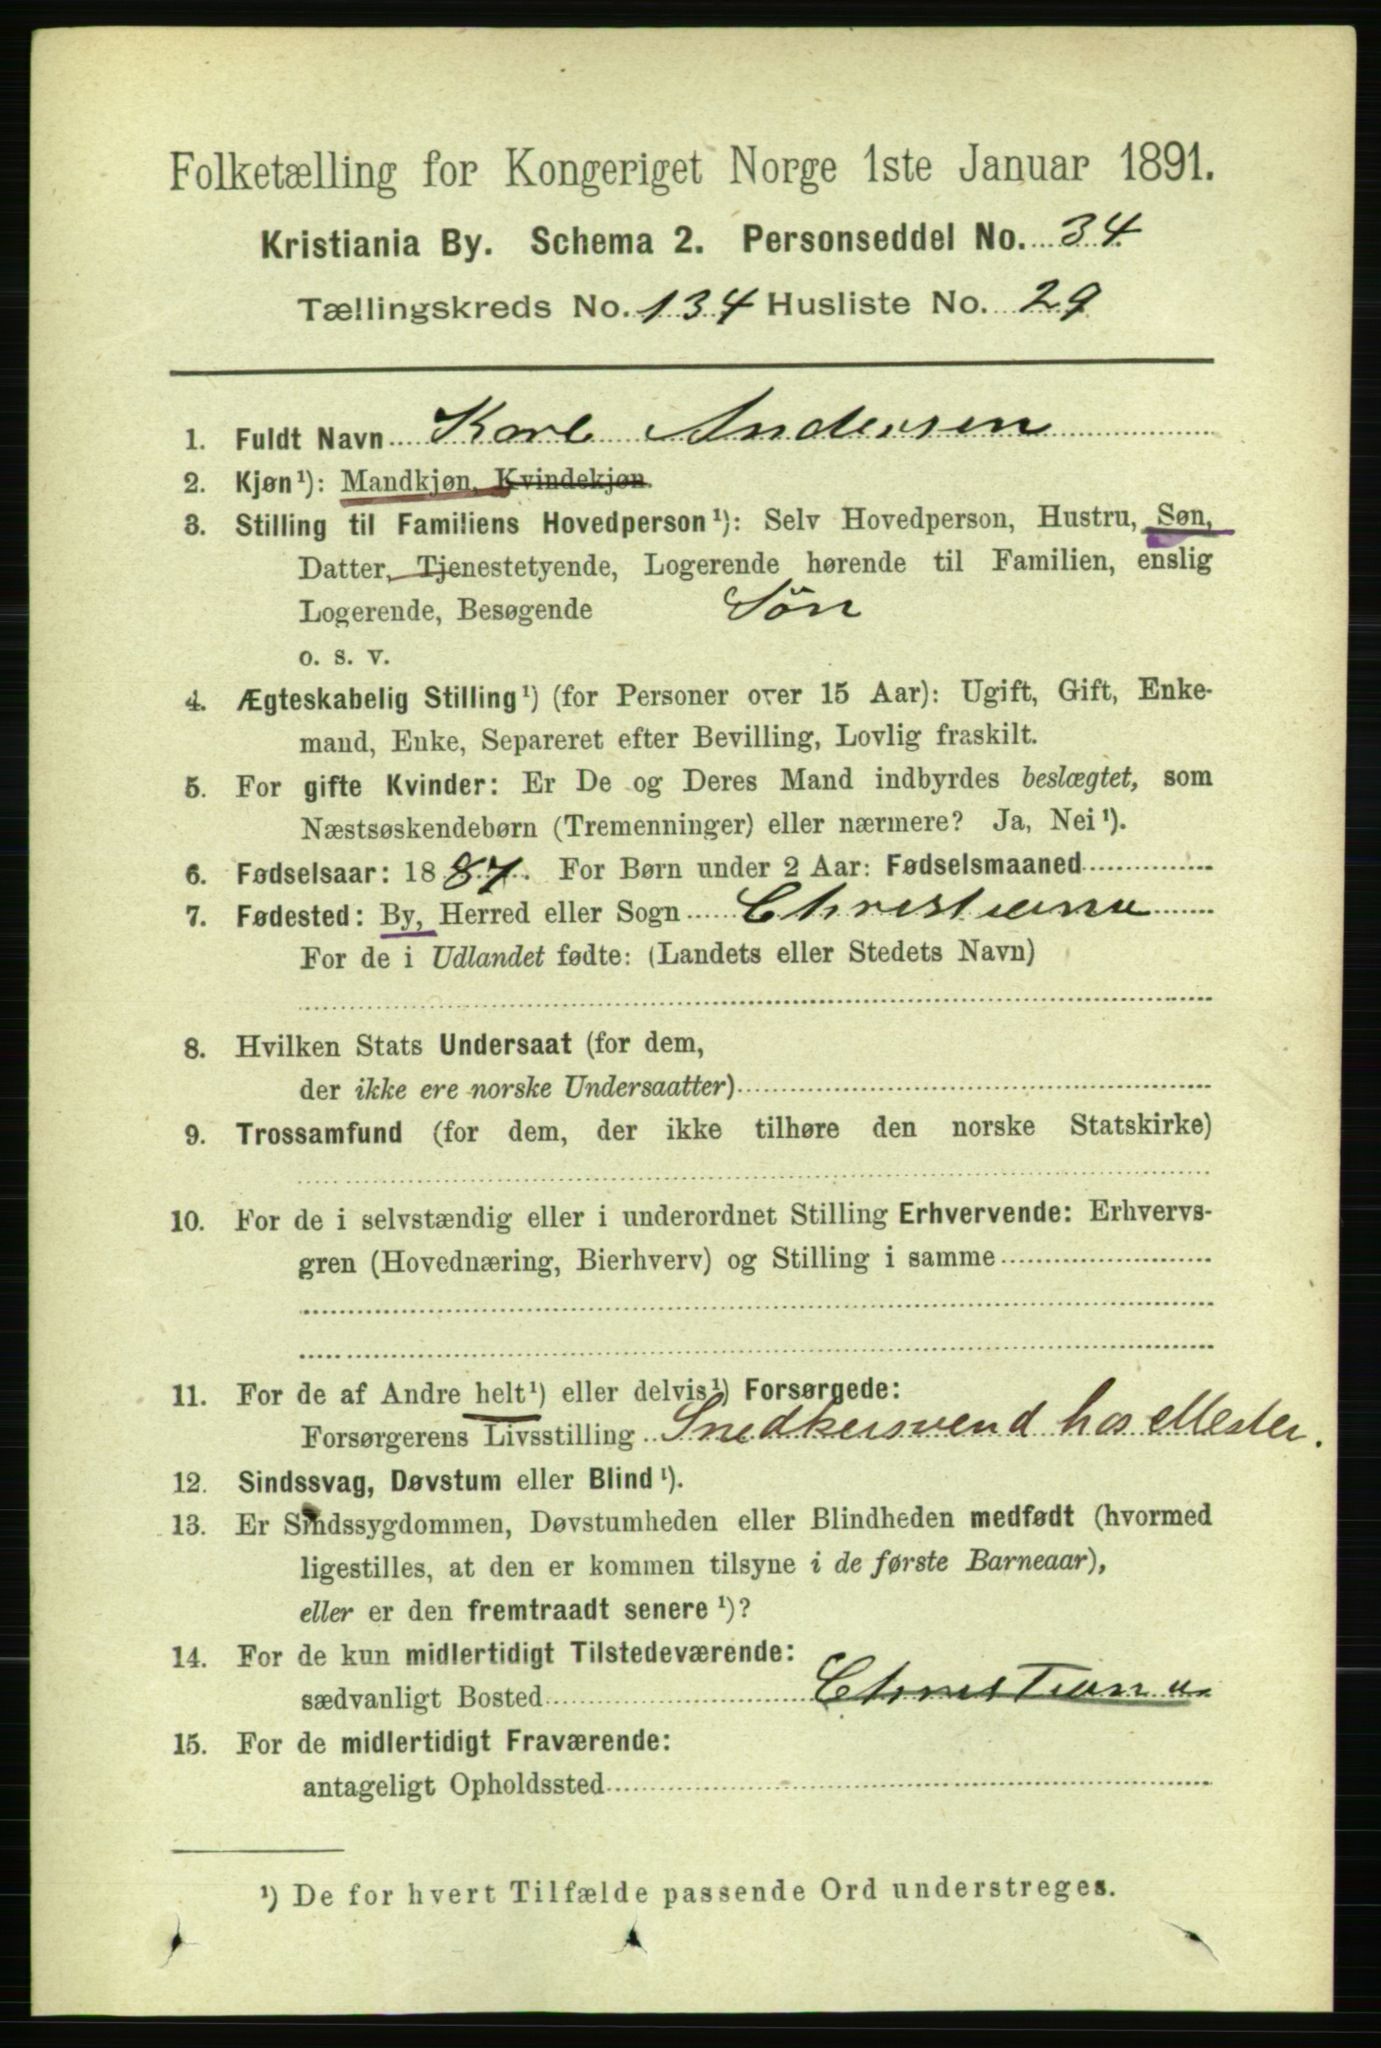 Folketælling for Kongeriget Norge 1ste Januar 1891.
Kristiania By. Schema 2. Personseddel No. 34
Tællingskreds No. 134 Husliste No. 29
1. Fuldt Navn Karl Andersen
2. Kjøn¹): Mandkjøn, Kvindekjøn.
3. Stilling til Familiens Hovedperson¹): Selv Hovedperson, Hustru, Søn,
Datter, Tjenestetyende, Logerende hørende til Familien, enslig
Logerende, Besøgende Søn
o. s. v.
4. Ægteskabelig Stilling¹) (for Personer over 15 Aar): Ugift, Gift, Enke-
mand, Enke, Separeret efter Bevilling, Lovlig fraskilt.
5. For gifte Kvinder: Er De og Deres Mand indbyrdes beslægtet, som
Næstsøskendebørn (Tremenninger) eller nærmere? Ja, Nei¹).
6. Fødselsaar: 1887. For Børn under 2 Aar: Fødselsmaaned
7. Fødested: By, Herred eller Sogn Christiania
For de i Udlandet fødte: (Landets eller Stedets Navn)
8. Hvilken Stats Undersaat (for dem,
der ikke ere norske Undersaatter)
9. Trossamfund (for dem, der ikke tilhøre den norske Statskirke)
10. For de i selvstændig eller i underordnet Stilling Erhvervende: Erhvervs-
gren (Hovednæring, Bierhverv) og Stilling i samme
11. For de af Andre helt¹) eller delvis¹) Forsørgede:
Forsørgerens Livsstilling Snedkersvend hos Mester.
12. Sindssvag, Døvstum eller Blind¹).
13. Er Sindssygdommen, Døvstumheden eller Blindheden medfødt (hvormed
ligestilles, at den er kommen tilsyne i de første Barneaar),
eller er den fremtraadt senere¹)?
14. For de kun midlertidigt Tilstedeværende:
sædvanligt Bosted Christiania
15. For de midlertidigt Fraværende:
antageligt Opholdssted
¹) De for hvert Tilfælde passende Ord understreges.